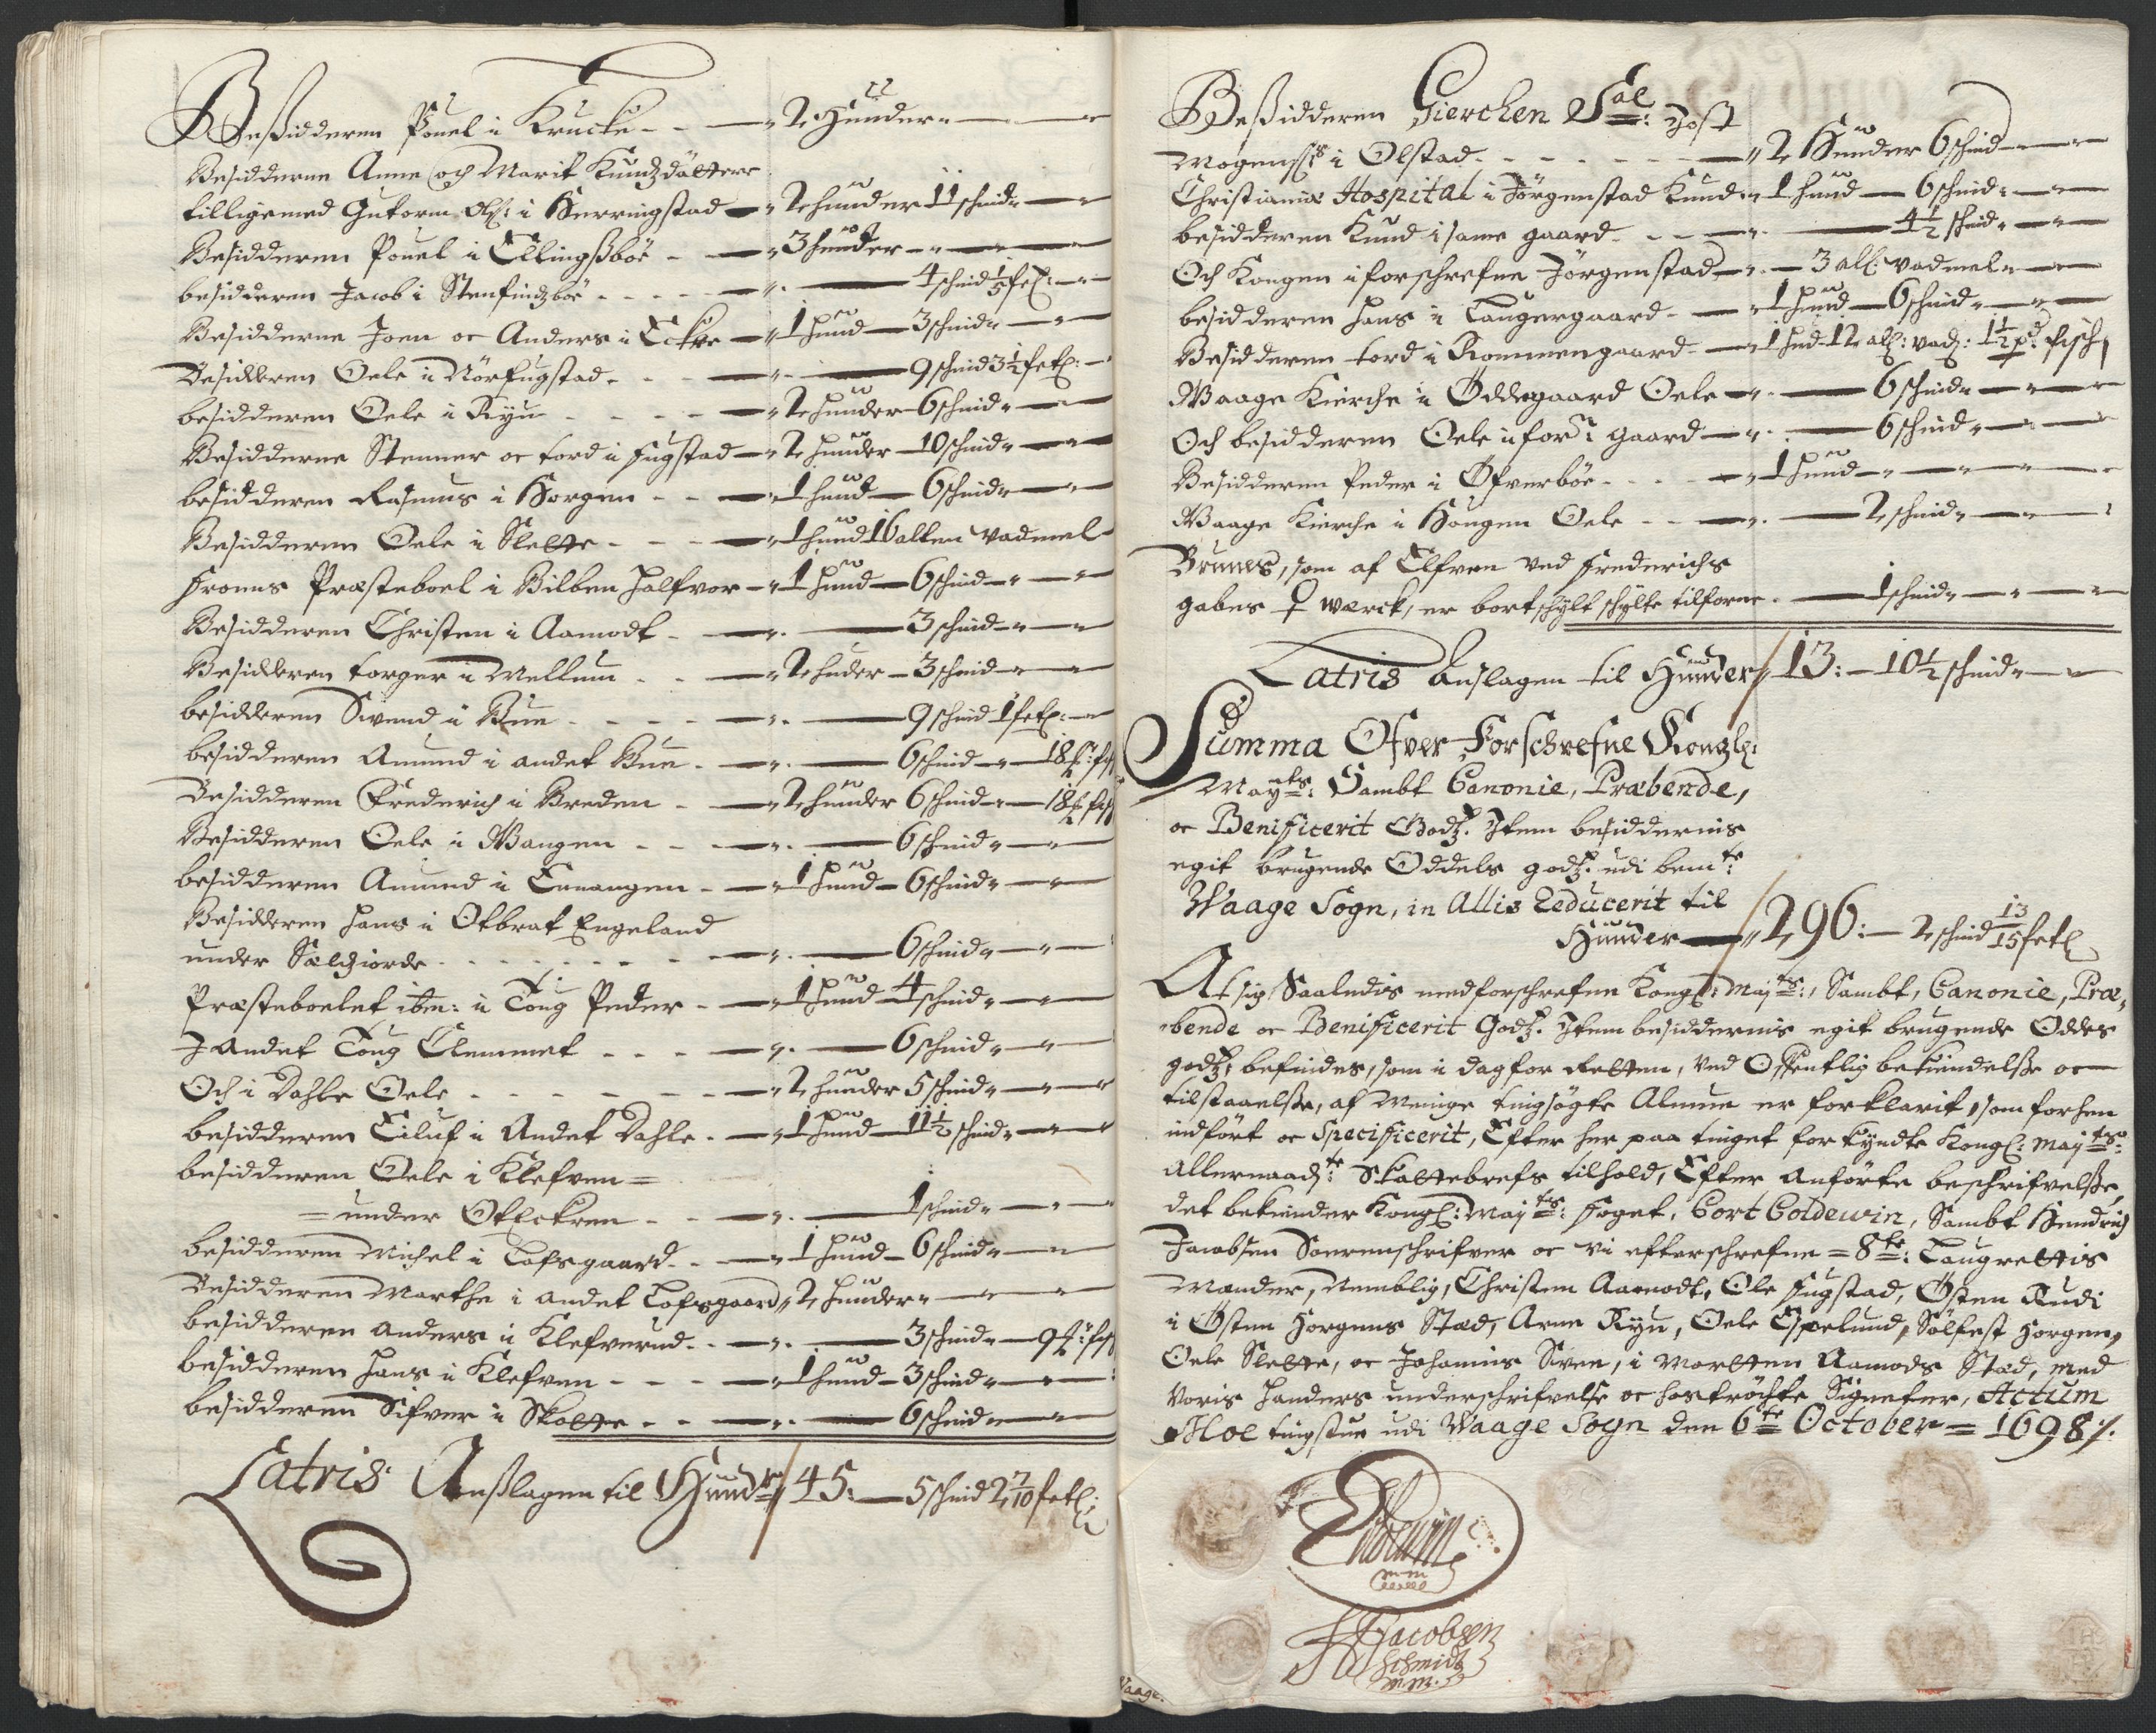 Beßidderen Pouel i Krucke - - — " 2 Hunder " —
Besidderne Anne och Marit Knudzdåttere
tilligemed Gutorm Ols: i Herringstad — " 2 hunder 11 schind " —
Besidderen Pouel i Ellingßböe - — " 3 hunder " —
besidderen Jacob i Stenfindzböe - - - - — " . — 4 schind 1/5 fetl: —
Besidderne Joen oc Anders i Eckre — " 1 hund — 3 schind " —
Besidderen Oele i Nörfugstad - - — " . — 9 schind 3 1/2 fetl: —
besidderen Oele i Ryu - - - - — " 2 hunder 6 schind " —
Besidderne Stenner oc tord i fugstad — " 2 hunder 10 schind " —
besidderen Rasmus i Horgen - - — " 1 hund — 6 schind " —
Besidderen Oele i Slette - - - — " 1 hund 16 allen vadmel
Froens Præsteboel i Bilben Halfvor — " 1 hund — 6 schind " —
Besidderen Christen i Aamodt - — " . — 3 schind " —
Besidderen torger i Mellum - - — " 2 huder — 3 schind " —
besidderen Svend i Bue - - - - — " . — 9 schind 1 fetl: —
besidderen Amund i andet Bue - — " . — 6 schind " — 18 ...
Besidderen Frederich i Breden - — " 2 hunder 6 schind " — 18 ...
Besidderen Oele i Wangen - - — " . — 6 schind " —
besidderen Amund i Ennangen - — " 1 hund — 6 schind " —
Besidderen Hans i Otbrat Engeland
under Sælgiorde - - - - - - — " . — 6 schind " —
Præsteboelet ibm: i Toug Peder - — " 1 hund 4 schind " —
J Andet Toug Clemmet - - - — " . — 6 schind " —
Och i Dahle Oele - - - - - — " 2 hunder 5 schind " —
besidderen Eiluf i Andet Dahle - — " 1 hund 11 1/2 schind " —
besidderen Oele i Klefven =
= under Oteckren - - — " . — 1 schind " —
besidderen Michel i Lofsgaard - - — " 1 hund — 6 schind " —
Besidderen Marthe i andet Lofsgaard " 2 hunder " —
besidderen Anders i Klefverud - - — " . — 3 schind " — 9 ...
besidderen Hans i Klefven - - - — " 1 hund — 3 schind " —
besidderen Sifver i Skotte - - — " . — 6 schind " —
Latris Anßlagen til Hund: 45: — 5 schind 2 7/10 fetl:
Beßidderen Gierchen Sal: Jost
Mogenss: i Olstad - - - - - — " 2 Hunder 6 schind —
Christianiæ Hospital i Jörgenstad Knud " 1 hund — 6 schind " —
besidderen Knud i same gaard - - - — " . — 4 1/2 schind " —
Och Kongen i forschrefne Jörgenstad — " . — 3 all: vadmel " —
besidderen Hans i Laugergaard - — " 1 hund — 6 schind " —
Besidderen tord i Rommengaard — " 1 hud 12 all: vad: 1 1/2 pd: fisch
Waage Kierche i Öddegaard Oele — " . — 6 schind " —
Och besidderen Oele i forn: gaard — " . — 6 schind " —
Besidderen Peder i Öfverböe - - - — " 1 hund — " —
Waage Kierche i Hougen Oele - - — " . — 2 schind " —
Brunes, som af Elfven ved Frederichs
gabes ♀ werck, er bortschylt schylte tilforne - — 1 schind " —
Latris Anslagen til Hunder 13: — 10 1/2 schind " —
Summa Ofver Forschrefne Kongl:
Mayts: Sambt Canonie, Præbende,
oc Benificerit Godz. Jtem besiddernis
egit brugende Oddels godz. udi bemte:
Waage Sogn, in Allis Reducerit til
Hunder — " 296: — 2 schind 13/15 fetl
At sig Saaledis med forschrefne Kongl: Mayts:, Sambt, Canonie, Præ-
bende oc Benificerit Godz. Jtem besiddernis egit brugende Oddes
godz, befindes, som i dag for Retten, ved Offentlig bekiendelße oc
tilstaaelße, af Menige tingsögte Almue er forklarit, som forhen
indfört oc Specificerit, Efter her paa tinget forkyndte Kongl: Mayts:
Allernaadste: Skattebrefs tilhold, Efter Anförte beschrifvelße
det bekiender Kongl: Mayts: foget, Cort Coldewin, Sambt Hendrich
Jacobsen Sorenschrifver oc vi efterschrefne = 8te: Laugrettis
Mænder, Nemblig, Christen Aamodt, Ole fugstad, Östen Rudi
i Östen Horgens Stæd, Arne Ryu, Oele Espelund, Sölfest Horgen,
Oele Slette, oc Johannis Sven, i Morten Aamods Stæd, med
voris Hænders underschrifvelse oc hoströchte Signeter, Actum
Hoe tingstue udi Waage Sogn den 6te October = 1698 /.
Coldewin
mm
HJacobsen
Schmidt
m.m.
Waage.